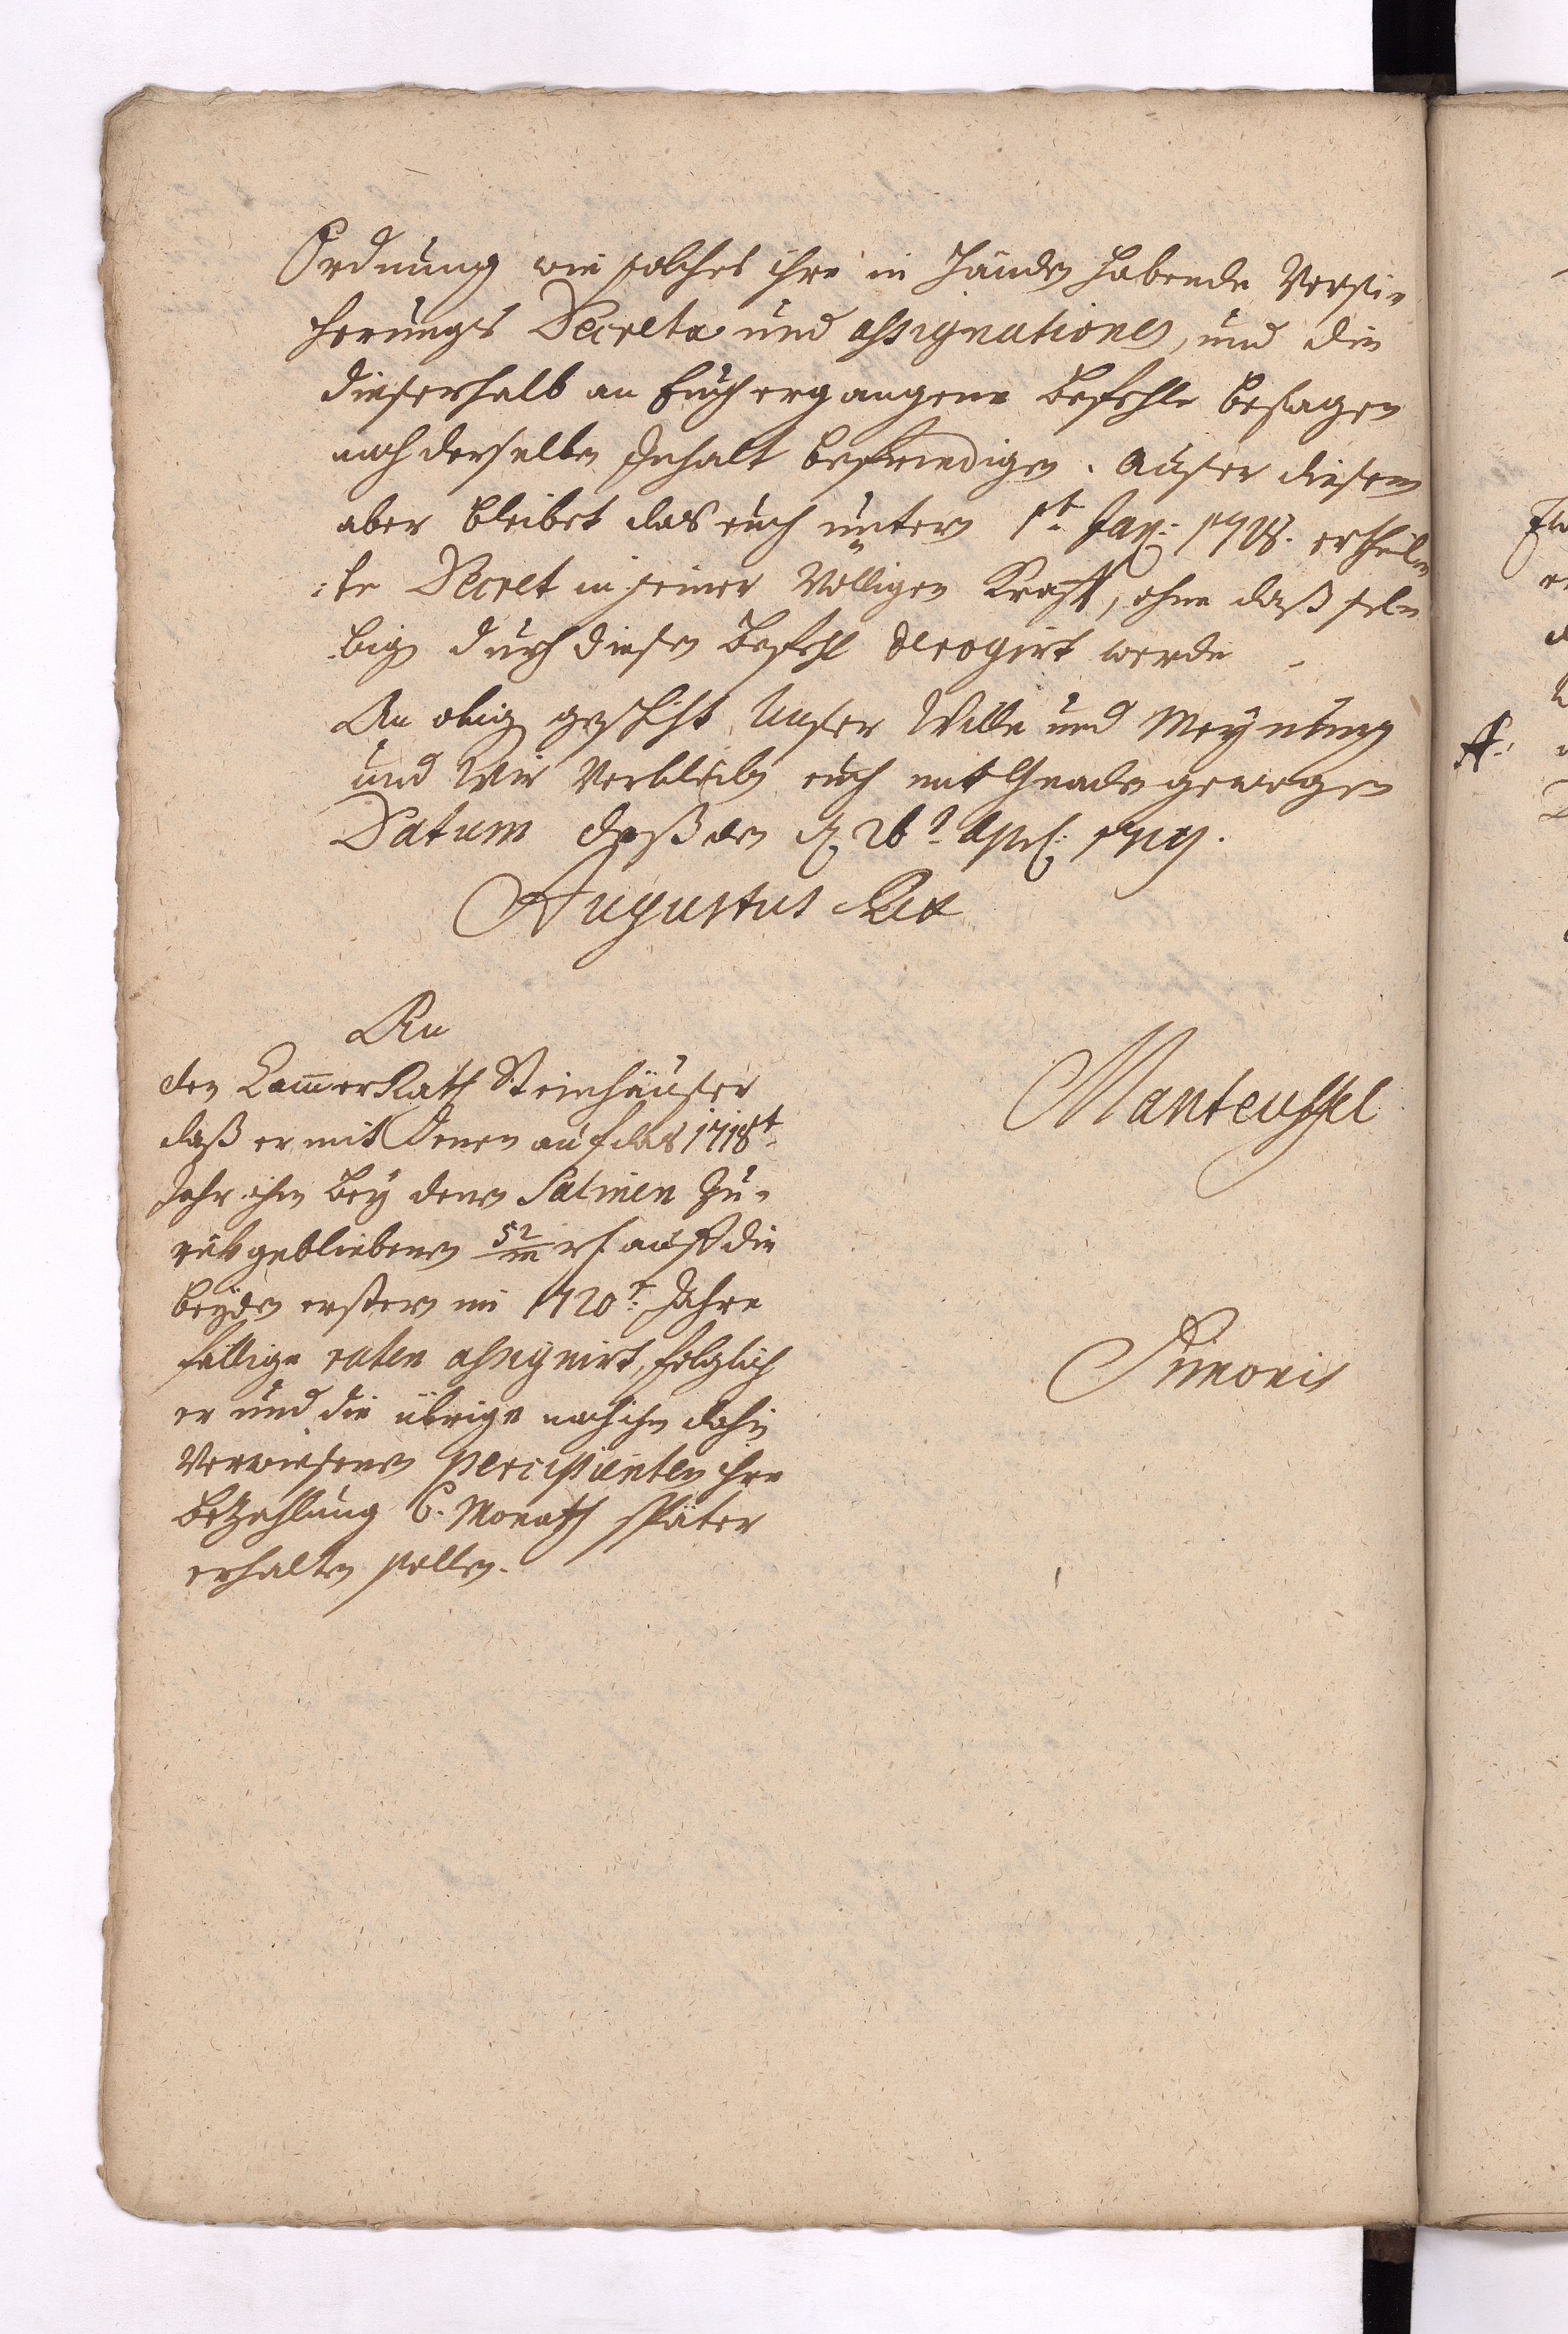 Ordnung wie solches ihre in Händen habende Versi-
cherungs Decreta und assignationes, und die
dieserhalb an Euch ergangene Befehle besagen
nach derselben Inhalt befriedigen. Außer diesem
aber bleibet das euch unterm 1t. Jan: 1718. ertheil-
te Decret in seiner Völligen Krafft, ohne daß sel-
bigen durch diesen Befehl derogirt werde
An obigen geschiht Unser Wille und Meynung
und Wir Verbleiben euch mit Gnaden gewogen
Datum Dreßden d. 26t. April: 1719.
Augustus Rex
An
den CammerRath Steinhäuser
daß er mit Denen auf das 1718t.
Jahr ihm bey denen Salinen Zu-
rükgebliebenen 52/m rh. auff die
beyden ersten im 1720t. Jahre
fällige raten assignirt, folglich
er und die übrige nach ihm dahin
Verwiesenen percipienten ihre
Bezahlung 6. Monath später
erhalten sollen.
Manteuffel
Simonis
A: